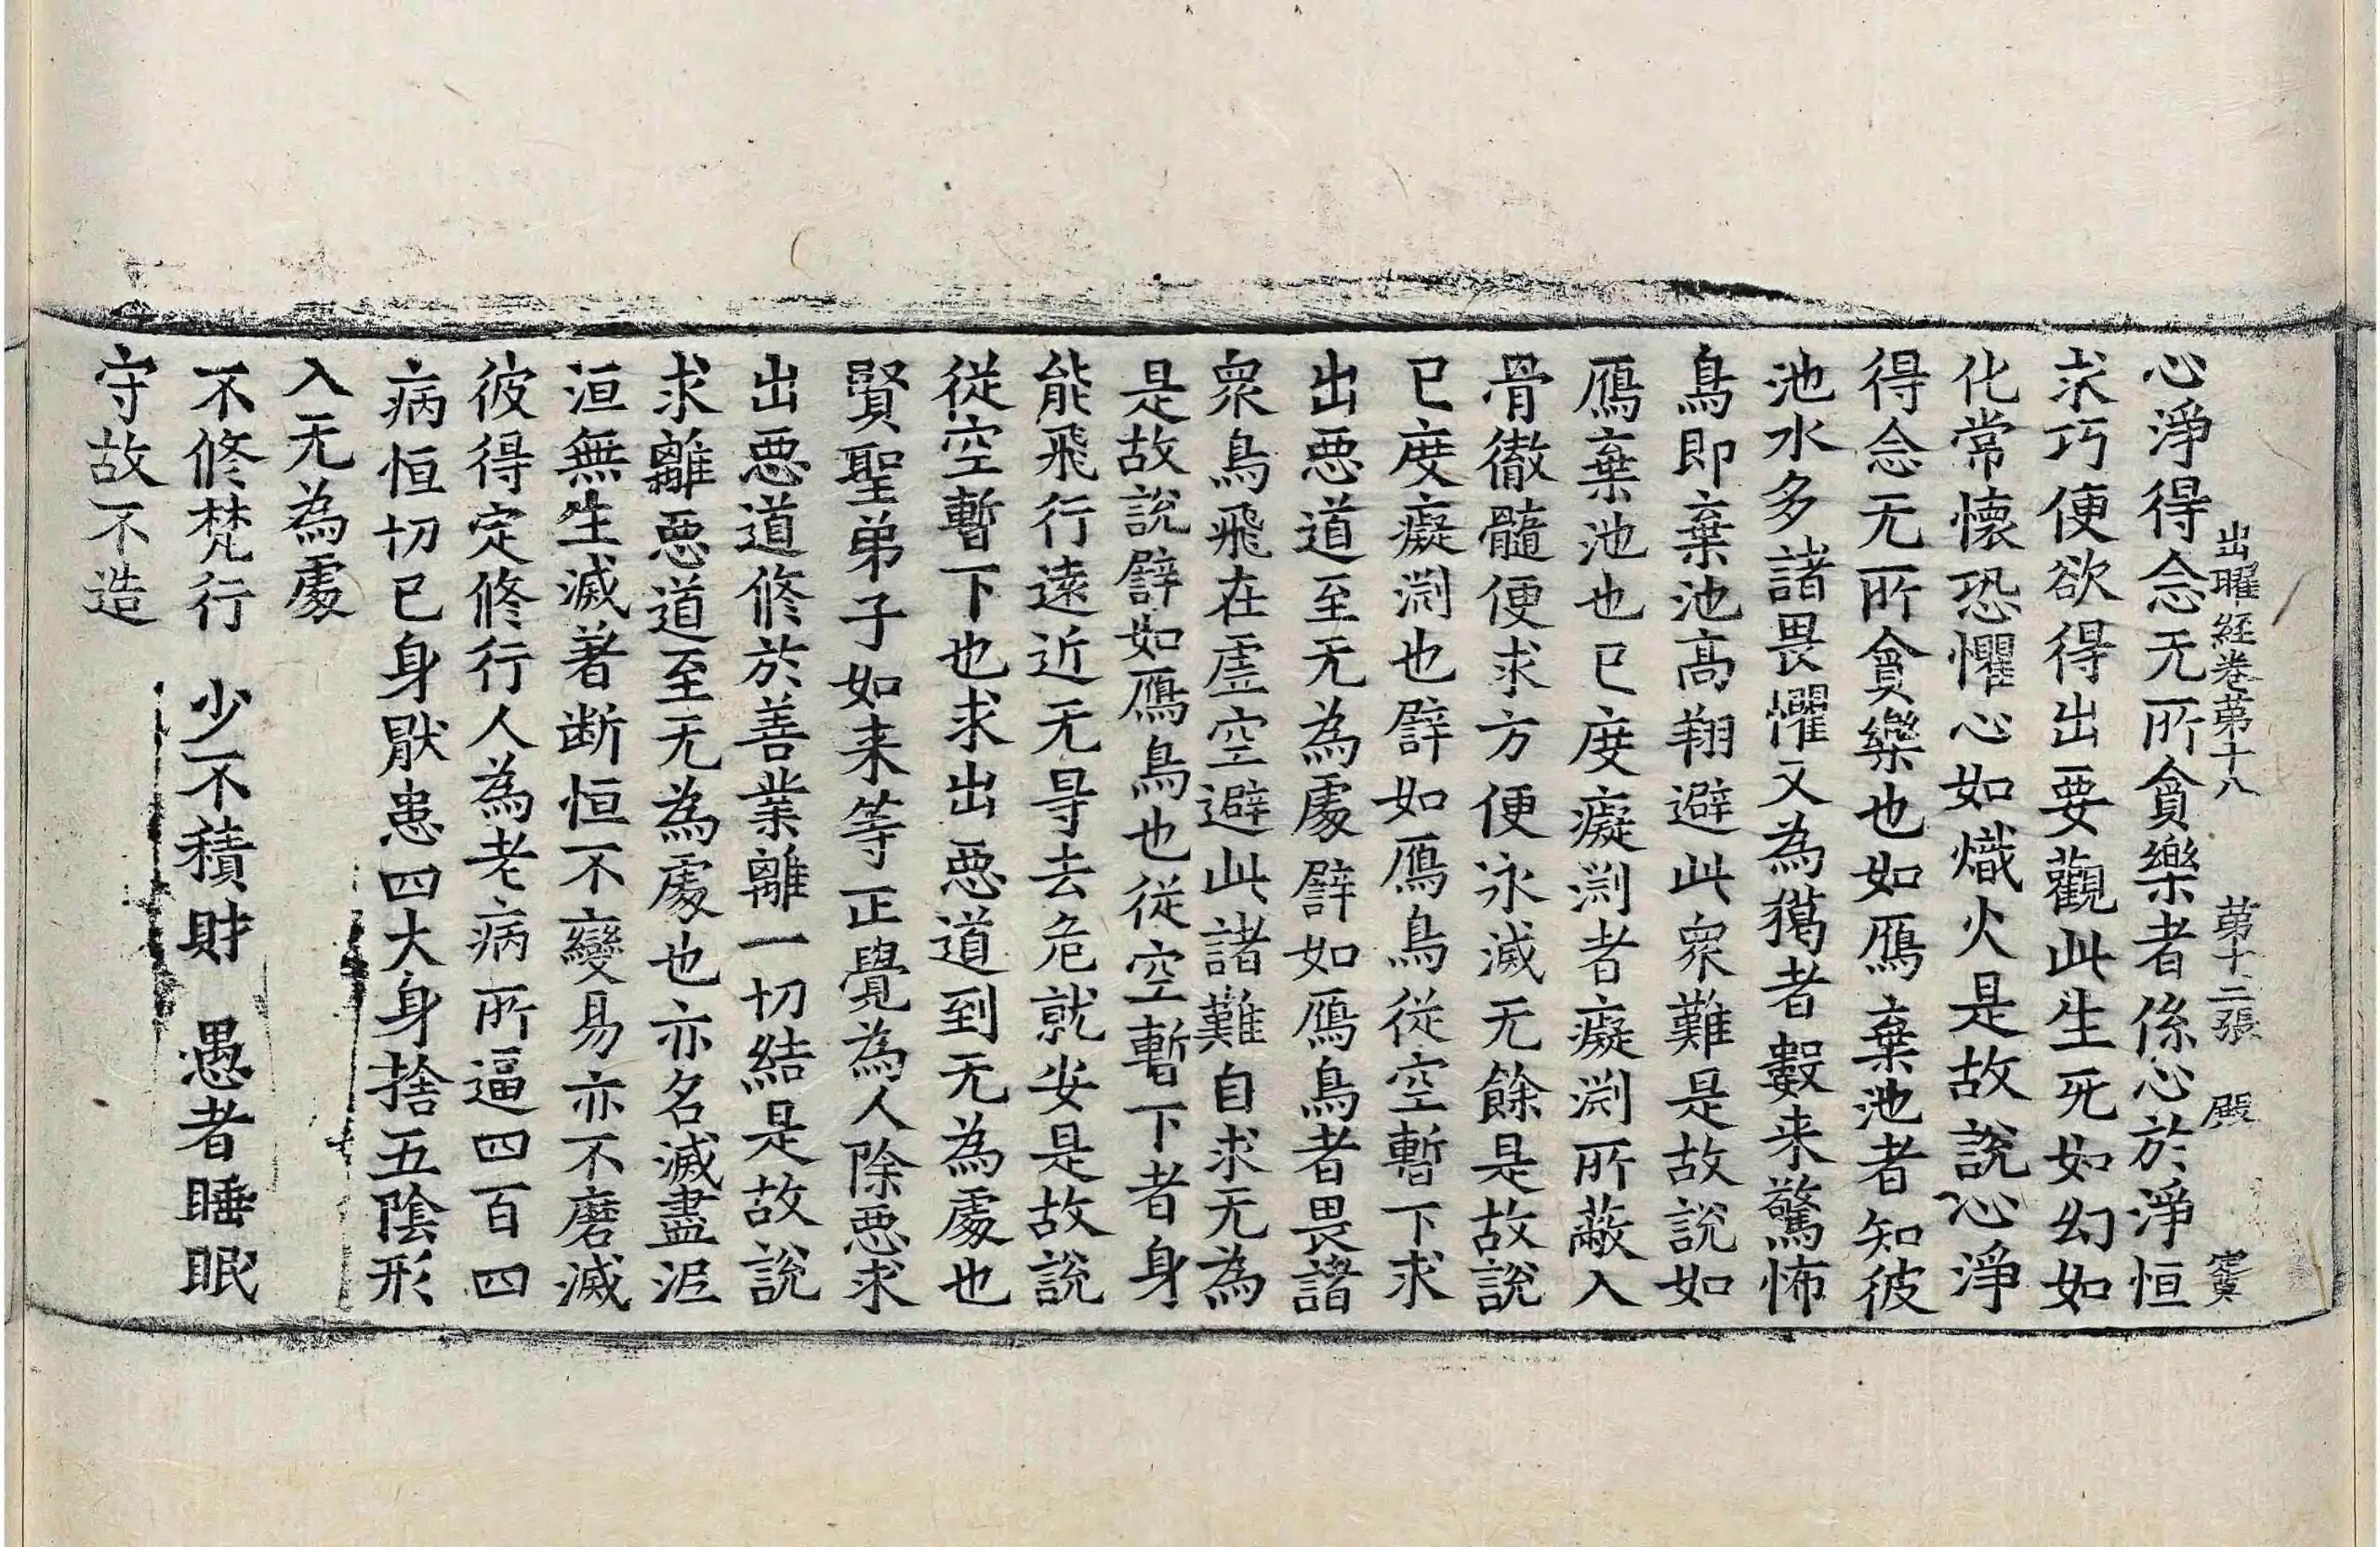 出曜經卷第十八 第十二張 殿
心淨得念无所貪樂者係心於淨恒
求巧便欲得出要觀此生死如幻如
化常懷恐懼心如熾火是故說心淨
得念无所貪樂也如鴈棄池者知彼
池水多諸畏懼又為獦者數来驚怖
鳥即棄池高翔避此衆難是故說如
鴈棄池也已度癡渕者癡渕所蔽入
骨徹髓便求方便永滅无餘是故說
已度癡渕也譬如鴈鳥從空暫下求
出惡道至无為處譬如鴈鳥者畏諸
衆鳥飛在虛空避此諸難自求无為
是故說譬如鴈鳥也從空暫下者身
能飛行遠近无㝵去危就安是故說
從空暫下也求出惡道到无為處也
賢聖弟子如来等正覺為人除惡求
出惡道修於善業離一切結是故說
求離惡道至无為處也亦名滅盡泥
洹無生滅著断恒不變易亦不磨滅
彼得定修行人為老病所逼四百四
病恒切已身猒患四大身捨五陰形
入无為處
不修梵行 少不積財 愚者睡眠
守故不造